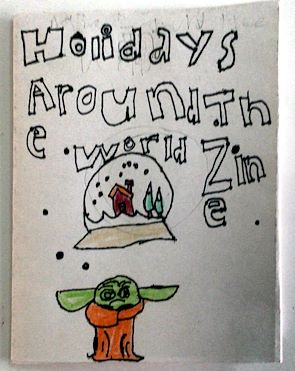 Holidays
Around.Th
e .World Zin
e .